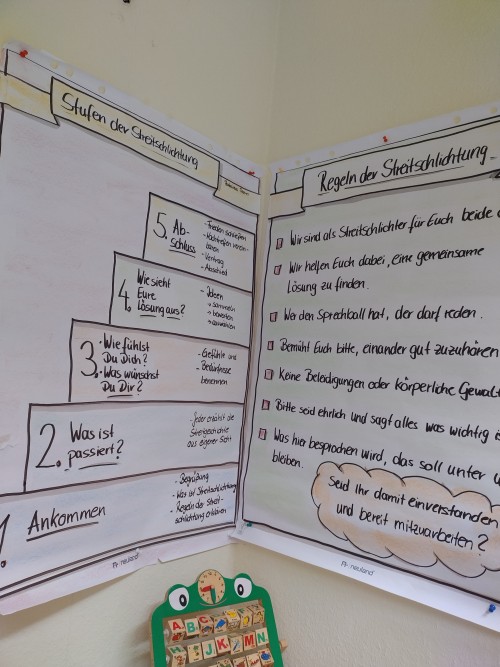 Stufen der Streitschlichtung
5. Ab-
schluss
- Frieden schließen
- Nachtreffen verein-
baren
- Vertrag
- Abschied
4. Wie sieht
Eure
Lösung aus?
- Ideen
→ sammeln
→ bewerten
→ auswählen
3. • Wie fühlst
Du Dich?
• Was wünschst
Du Dir?
- Gefühle und
- Bedürfnisse
benennen
2. Was ist
passiert?
- Jeder erzählt die
Streitgeschichte
aus eigener Sicht
1. Ankommen
- Begrüßung
- Was ist Streitschlichtung
- Regeln der Streit-
schlichtung erklären
neuland
Regeln der Streitschlichtung
Wir sind als Streitschlichter für Euch beide
Wir helfen Euch dabei, eine gemeinsame
Lösung zu finden.
Wer den Sprechball hat, der darf reden.
Bemüht Euch bitte, einander gut zuzuhören
Keine Beleidigungen oder körperliche Gewalt
Bitte seid ehrlich und sagt alles was wichtig
Was hier besprochen wird, das soll unter
bleiben.
Seid Ihr damit einverstanden
und bereit mitzuarbeiten?
neuland
A B C
K L M N